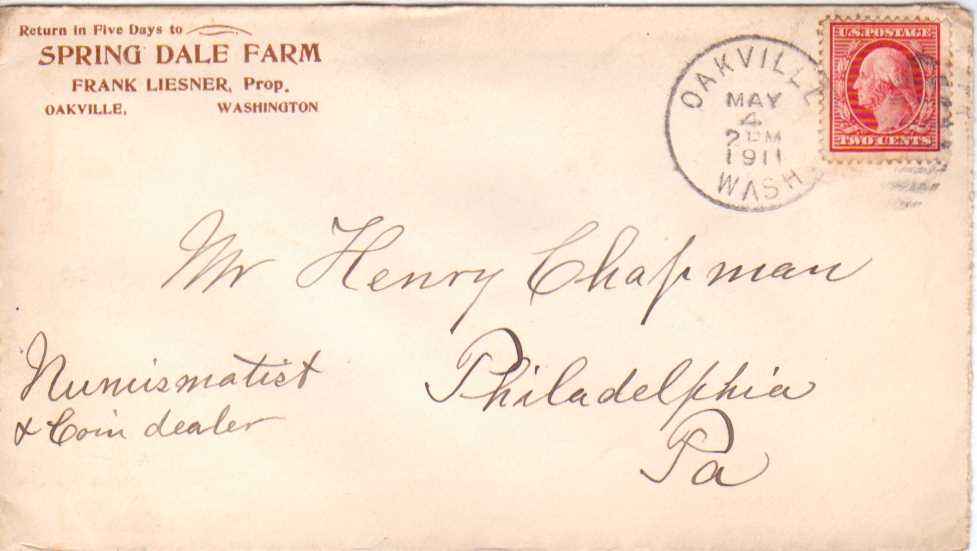 Return in Five Days to
SPRING DALE FARM
FRANK LIESNER, Prop.
OAKVILLE, WASHINGTON
OAKVILLE
MAY
4
2 PM
1911
WASH.
U.S. POSTAGE
TWO CENTS
Mr Henry Chapman
Numismatist
& Coin dealer
Philadelphia
Pa